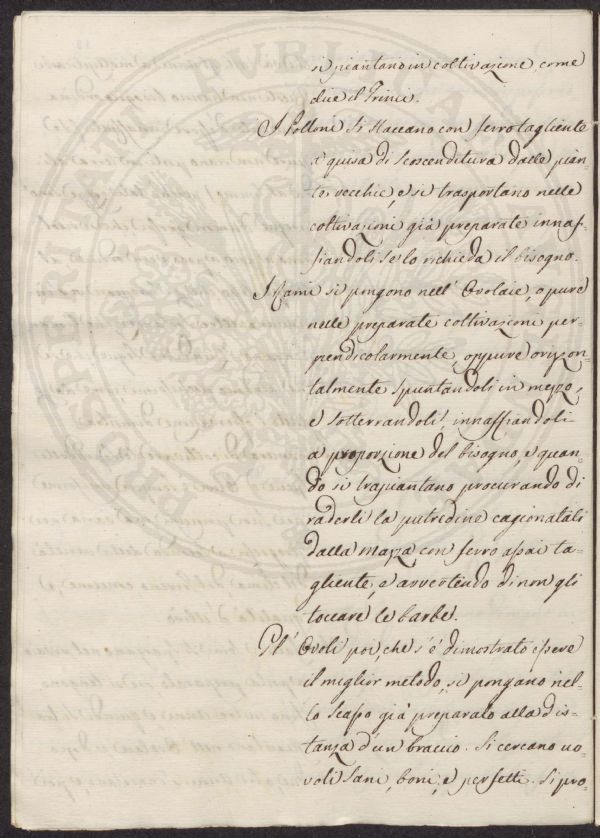 si piantano in coltivazione, come
due il Trinci.
I Polloni si staccano con ferro tagliente
a guisa di scoscenditura dalle pian-
te vecchie, e si trasportano nelle
coltivazioni già preparate innaf-
fiandoli se lo richieda il bisogno.
I Rami si pongono nell' Ovolaie, o pure
nelle preparate coltivazioni per-
pendicolarmente, oppure orizon-
talmente spuntandoli in mezzo,
e sotterrandoli, innaffiandoli
a proporzione del bisogno, e quan-
do si trapiantano procurando di
raderli la putredine cagionatali
dalla mazza con ferro assai ta-
gliente, e avvertendo di non gli
toccare le barbe.
Gl' Ovoli poi, che s'è dimostrato essere
il miglior metodo, si pongano nel-
lo scasso già preparato alla dis-
tanza d'un braccio. Si cercano uo-
voli sani, boni, e perfetti. Si pro-
PROSPERITATI PUBLICAE